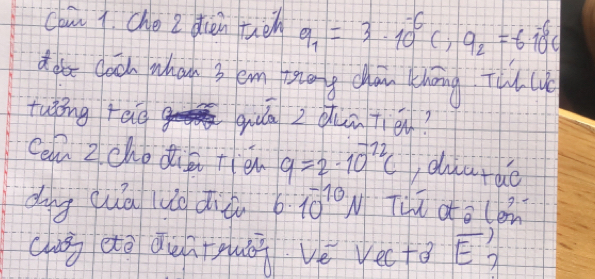 Câu 1. Cho 2 điện tích q₁ = 3 · 10⁻⁶ C, q₂ = 6 10⁻⁶ C
đặt cách nhau 3 cm trong chân không. Tính lực
tương tác giữa 2 điện tích?
Câu 2. Cho điện tích q = 2 · 10⁻¹² C, chịu tác
dụng của lực điện 6 · 10⁻¹⁰ N Tính độ lớn
cường độ điện trường. Vẽ vectơ E?